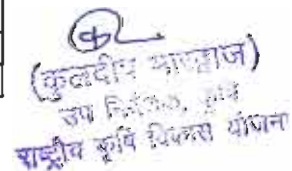 (कुलदीप भारद्वाज)
उप निदेशक, कृषि
राष्ट्रीय कृषि विकास योजना